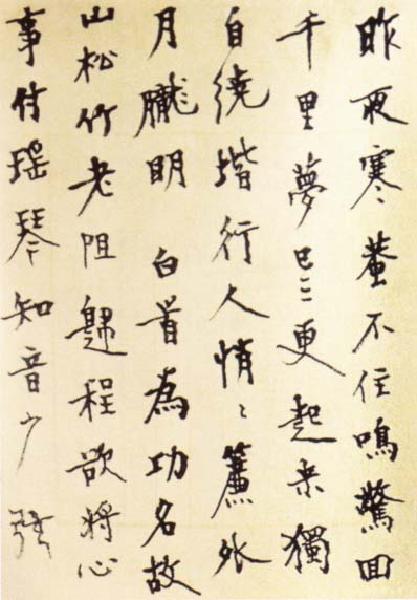 昨夜寒蛩不住鳴驚回
千里夢已三更起来獨
自繞堦行人悄〻簾外
月朧明 白首為功名故
山松竹老阻歸程欲將心
事付瑤琴知音少弦